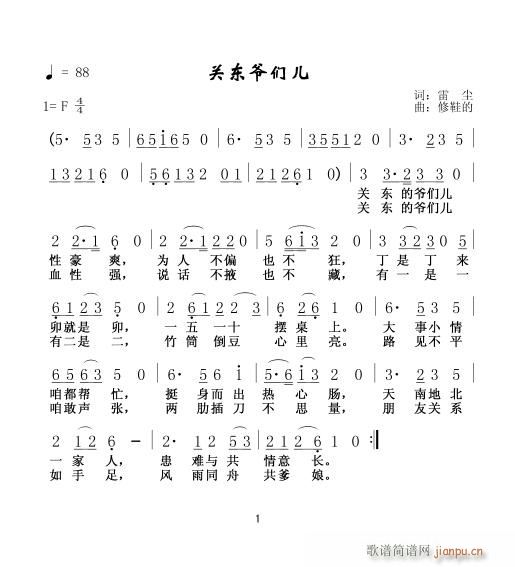 ♩ = 88
关东爷们儿
1= F 4/4
词：雷 尘
曲：修鞋的
(5· 53 5 | 6 5 1 6 5 0 | 6· 53 5 | 3 5 5 5 1 2 0 | 3· 23 5 |
1 3 2 1 6 0 | 5 6 1 3 2 01 | 2 1 2 6 1 0) | 3 3·2 3 3 0 |
关 东 的爷们儿
关 东 的爷们儿
2 2·1 6 0 | 2 2·1 2 2 0 5 | 5 6 1 3 2 0 | 3 3 2 3 0 5 |
性豪 爽， 为人 不偏 也不 狂， 丁是丁 来
血性 强， 说话 不掖 也不 藏， 有一是 一
6 1 2 3 5 0 | 2 6 1 2 2 3 | 6 2 6 1· | 3· 53 5 |
卯就是 卯， 一 五一十 摆桌 上。 大 事小 情
有二是 二， 竹 筒倒豆 心里 亮。 路 见不 平
6 5 6 3 5 0 | 3 2 3 5 2 | 5·6 1 3 2 0 | 1· 23 5 |
咱都帮 忙， 挺 身而出 热心 肠， 天 南地 北
咱敢声 张， 两 肋插刀 不思 量， 朋 友关 系
2 1 2 6 – | 2· 12 53 | 2 1 2 6 0 :||
一家 人， 患 难与 共 情意 长。
如手 足， 风 雨同 舟 共爹 娘。
1
歌谱简谱网
jianpu.cn